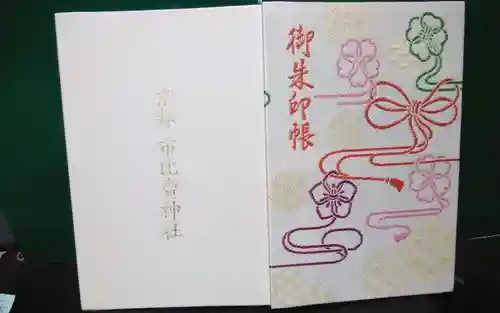 御朱印帳
市比賣神社